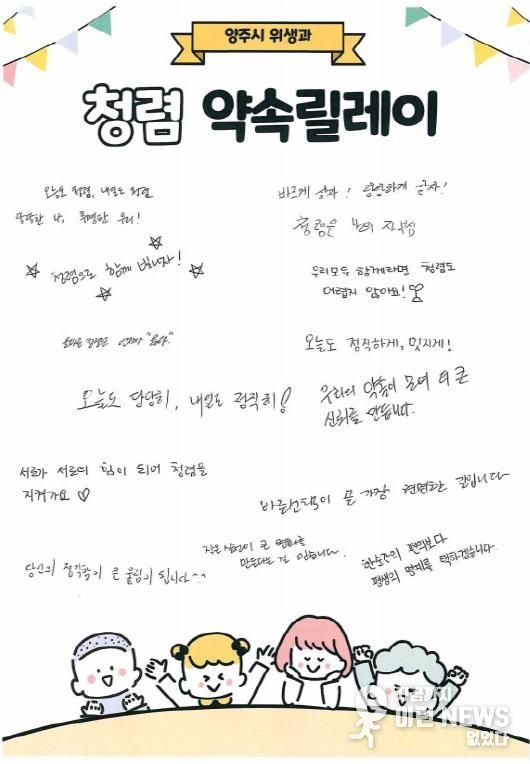 양주시 위생과
청렴 약속릴레이
오늘도 청렴, 내일도 청렴
당당한 나, 투명한 우리!
바르게 살자! 당당하게 살자!
청렴은 나의 자부심
청렴으로 함께 빛나자!
우리모두 함께라면 청렴도
어렵지 않아요!
오늘도 정직하게, 멋지게!
오늘도 당당히, 내일도 정직히!
우리의 약속이 모여 더 큰
신뢰를 만듭니다.
서로가 서로의 힘이 되어 청렴을
지켜가요 ♡
바른선택이 곧 가장 현명한 길입니다
작은 실천이 큰 변화를
만든다는 걸 믿습니다.
한순간의 편의보다
평생의 명예를 택하겠습니다.
당신의 정직함이 큰 울림이 됩니다^^
지금까지
이런 NEWS
없었다